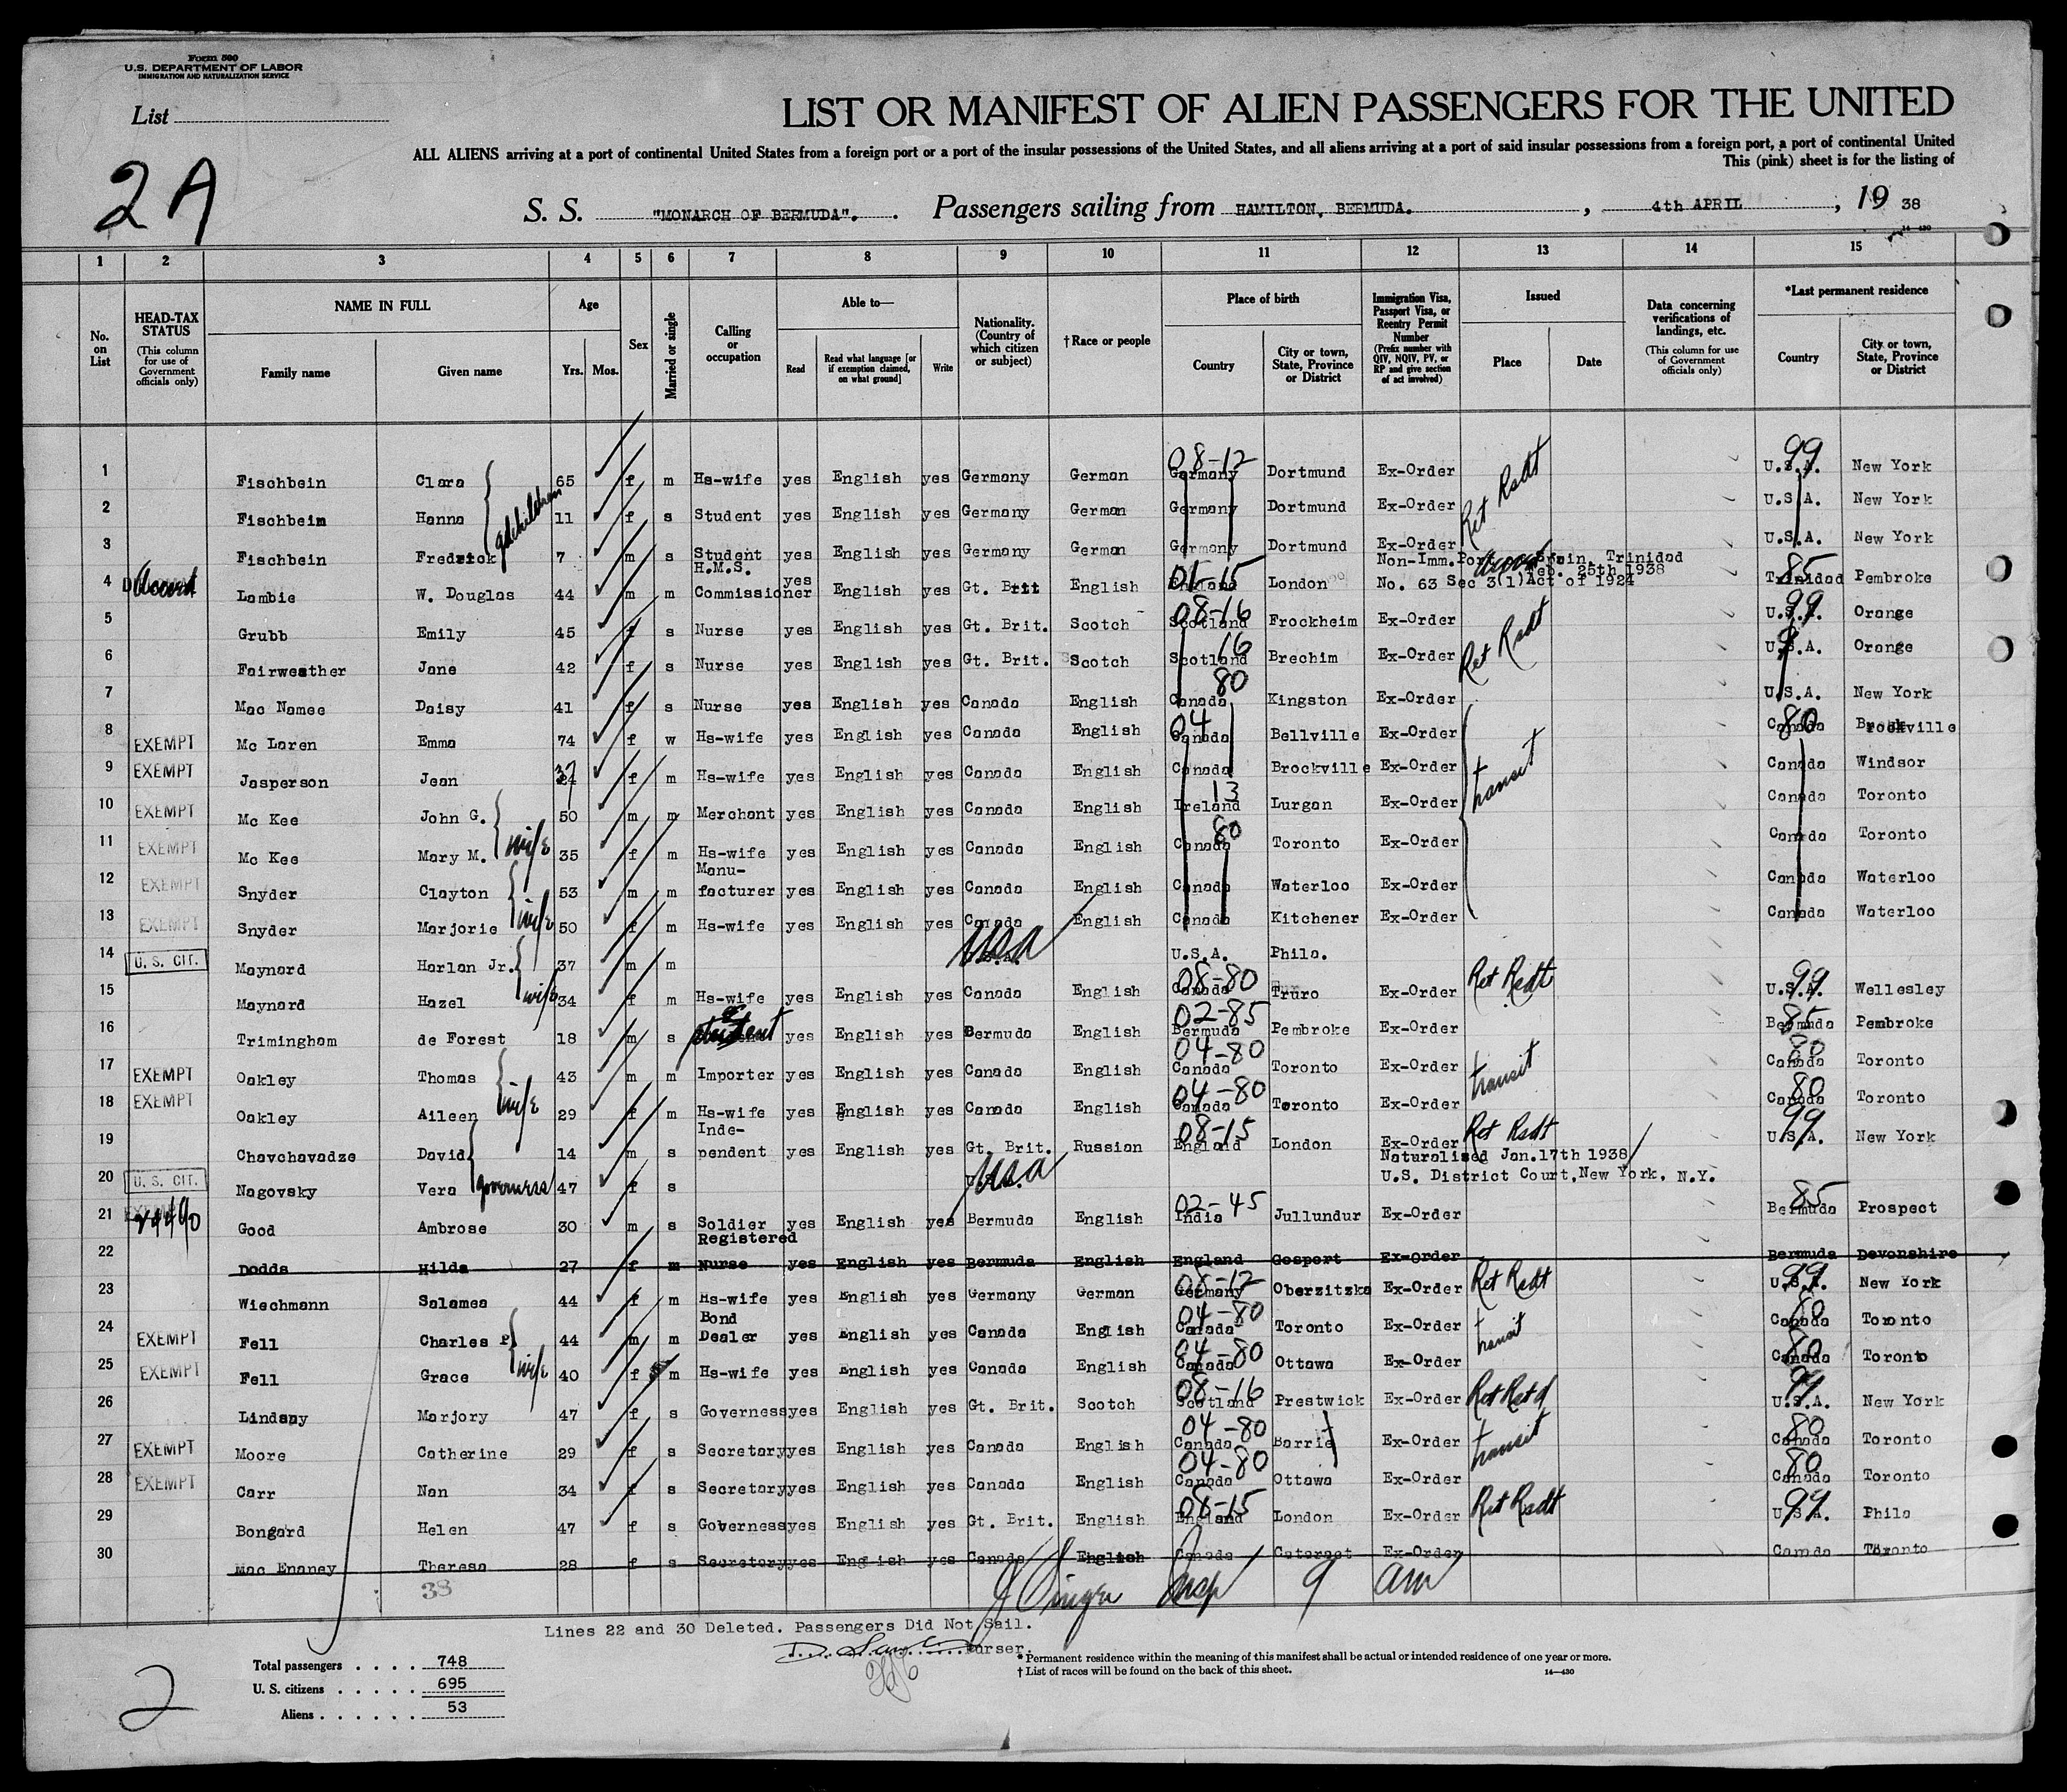 Form 500
U.S. DEPARTMENT OF LABOR
IMMIGRATION AND NATURALIZATION SERVICE
List
2A
LIST OR MANIFEST OF ALIEN PASSENGERS FOR THE UNITED
ALL ALIENS arriving at a port of continental United States from a foreign port or a port of the insular possessions of the United States, and all aliens arriving at a port of said insular possessions from a foreign port, a port of continental United
This (pink) sheet is for the listing of
S. S. "MONARCH OF BERMUDA". Passengers sailing from HAMILTON, BERMUDA. , 4th APRIL , 19 38
1 2 3 4 5 6 7 8 9 10 11 12 13 14 15
No. on List
HEAD-TAX STATUS (This column for use of Government officials only)
NAME IN FULL Family name Given name
Age Yrs. Mos.
Sex
Married or single
Calling or occupation
Able to— Read Read what language [or if exemption claimed, on what ground] Write
Nationality. (Country of which citizen or subject)
†Race or people
Place of birth Country City or town, State, Province or District
Immigration Visa, Passport Visa, or Reentry Permit Number (Prefix number with QIV, NQIV, PV, or RP and give section of act involved)
Issued Place Date
Data concerning verifications of landings, etc. (This column for use of Government officials only)
*Last permanent residence Country City or town, State, Province or District
1 Fischbein Clara 65 f m Hs-wife yes English yes Germany German 08-12 Germany Dortmund Ex-Order Ret Rsdt 99 U.S.A. New York
2 Fischbein Hanna gdchildren 11 f s Student yes English yes Germany German Germany Dortmund Ex-Order U.S.A. New York
3 Fischbein Fredrick 7 m s Student yes English yes Germany German Germany Dortmund Ex-Order U.S.A. New York
4 Lambie W. Douglas 44 m m H.M.S. Commissioner yes English yes Gt. Brit English 01-15 England London Non-Imm. Port of Spain, Trinidad Feb. 25th 1938 No. 63 Sec 3(1) Act of 1924 85 Trinidad Pembroke
5 Grubb Emily 45 f s Nurse yes English yes Gt. Brit. Scotch 08-16 Scotland Frockheim Ex-Order Ret Rsdt 99 U.S.A. Orange
6 Fairweather Jane 42 f s Nurse yes English yes Gt. Brit. Scotch 16 Scotland Brechim Ex-Order U.S.A. Orange
7 Mac Namee Daisy 41 f s Nurse yes English yes Canada English 80 Canada Kingston Ex-Order U.S.A. New York
8 EXEMPT Mc Laren Emma 74 f w Hs-wife yes English yes Canada English 04 Canada Bellville Ex-Order transit 80 Canada Brockville
9 EXEMPT Jasperson Jean 37 f m Hs-wife yes English yes Canada English Canada Brockville Ex-Order Canada Windsor
10 EXEMPT Mc Kee John G. 50 m m Merchant yes English yes Canada English 13 Ireland Lurgan Ex-Order Canada Toronto
11 EXEMPT Mc Kee Mary M. wife 35 f m Hs-wife yes English yes Canada English 80 Canada Toronto Ex-Order Canada Toronto
12 EXEMPT Snyder Clayton 53 m m Manu-facturer yes English yes Canada English Canada Waterloo Ex-Order Canada Waterloo
13 EXEMPT Snyder Marjorie wife 50 f m Hs-wife yes English yes Canada English Canada Kitchener Ex-Order Canada Waterloo
14 U. S. CIT. Maynard Harlan Jr. 37 m m USA U.S.A. Phila.
15 Maynard Hazel wife 34 f m Hs-wife yes English yes Canada English 08-80 Canada Truro Ex-Order Ret Rsdt 99 U.S.A. Wellesley
16 Trimingham de Forest 18 m s student yes English yes Bermuda English 02-85 Bermuda Pembroke Ex-Order 85 Bermuda Pembroke
17 EXEMPT Oakley Thomas 43 m m Importer yes English yes Canada English 04-80 Canada Toronto Ex-Order transit 80 Canada Toronto
18 EXEMPT Oakley Aileen wife 29 f m Hs-wife yes English yes Canada English 04-80 Canada Toronto Ex-Order 80 Canada Toronto
19 Chavchavadze David 14 m s Inde-pendent yes English yes Gt. Brit. Russian 08-15 England London Ex-Order Ret Rsdt 99 U.S.A. New York
20 U. S. CIT. Nagovsky Vera governess 47 f s USA Naturalised Jan. 17th 1938 U.S. District Court, New York, N.Y.
21 Good Ambrose 30 m s Soldier yes English yes Bermuda English 02-45 India Jullundur Ex-Order 85 Bermuda Prospect
22 Dodds Hilda 27 f m Registered Nurse yes English yes Bermuda English England Gosport Ex-Order Bermuda Devonshire
23 Wiechmann Salamea 44 f m Hs-wife yes English yes Germany German 08-12 Germany Oberzitzka Ex-Order Ret Rsdt 99 U.S.A. New York
24 EXEMPT Fell Charles P 44 m m Bond Dealer yes English yes Canada English 04-80 Canada Toronto Ex-Order transit 80 Canada Toronto
25 EXEMPT Fell Grace wife 40 f m Hs-wife yes English yes Canada English 04-80 Canada Ottawa Ex-Order 80 Canada Toronto
26 Lindsay Marjory 47 f s Governess yes English yes Gt. Brit. Scotch 08-16 Scotland Prestwick Ex-Order Ret Rstd 99 U.S.A. New York
27 EXEMPT Moore Catherine 29 f s Secretary yes English yes Canada English 04-80 Canada Barrie Ex-Order transit 80 Canada Toronto
28 EXEMPT Carr Nan 34 f s Secretary yes English yes Canada English 04-80 Canada Ottawa Ex-Order 80 Canada Toronto
29 Bongard Helen 47 f s Governess yes English yes Gt. Brit. English 08-15 England London Ex-Order Ret Rsdt 99 U.S.A. Phila
30 Mac Enaney Theresa 28 f s Secretary yes English yes Canada English Canada Cataract Ex-Order Canada Toronto
38
Lines 22 and 30 Deleted. Passengers Did Not Sail.
Purser.
Total passengers . . . . 748
U. S. citizens . . . . . 695
Aliens . . . . . . 53
2
* Permanent residence within the meaning of this manifest shall be actual or intended residence of one year or more.
† List of races will be found on the back of this sheet.
14—430